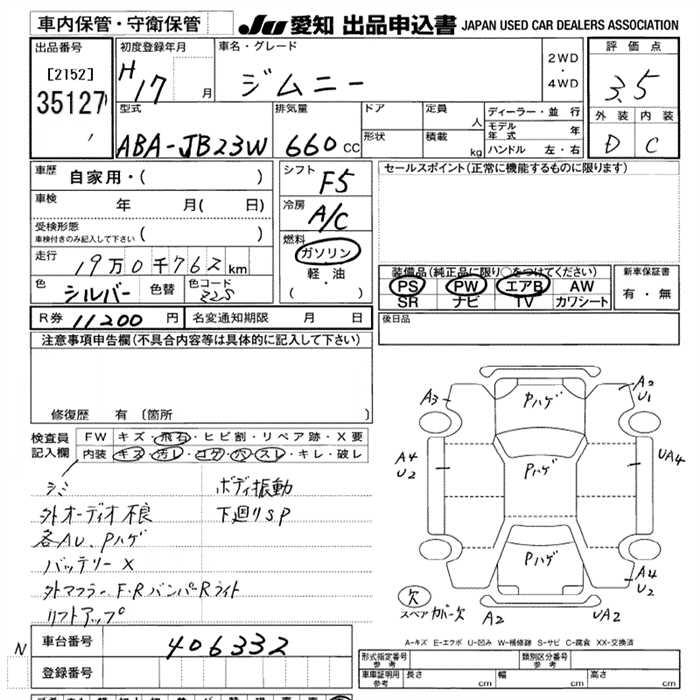 車内保管・守衛保管
JU 愛知 出品申込書 JAPAN USED CAR DEALERS ASSOCIATION
出品番号
[2152]
35127
初度登録年月
H17 月
車名・グレード
ジムニー
2WD
・
4WD
評価点
3.5
外装 内装
D C
型式
ABA-JB23W
排気量
660 CC
ドア
形状
定員 人
積載 kg
ディーラー・並行
モデル年式 年
ハンドル 左・右
車歴
自家用・( )
車検 年 月( 日)
受検形態
車検付きのみ記入して下さい ( )
走行
19万0千762km
色
シルバー
色替
色コード
Z2S
シフト
F5
冷房
A/C
燃料
ガソリン
軽・油
( )
セールスポイント(正常に機能するものに限ります)
装備品(純正品に限り○をつけてください)
PS PW エアB AW
SR ナビ TV カワシート
新車保証書
有・無
R券 11200 円
名変通知期限 月 日
後日品
注意事項申告欄(不具合内容等は具体的に記入して下さい)
修復歴 有〔箇所 〕
検査員
記入欄
FW キズ・飛石・ヒビ割・リペア跡・X要
内装 キズ・汚レ・コゲ・穴・スレ・キレ・破レ
シミ
外オーディオ不良
各AU、Pハゲ
バッテリーX
外マフラー F・RバンパーRライト
リフトアップ
ボディ振動
下廻りSP
A3
Pハゲ
A2
U1
A4
U2
Pハゲ
UA4
Pハゲ
A4
U2
欠
スペアカバー欠
A2
UA2
A-キズ E-エクボ U-凹み W-補修跡 S-サビ C-腐食 XX-交換済
N
車台番号 406332
登録番号
形式指定番号
参考
類別区分番号
参考
車庫証明用
参考
長さ cm
幅 cm
高さ cm